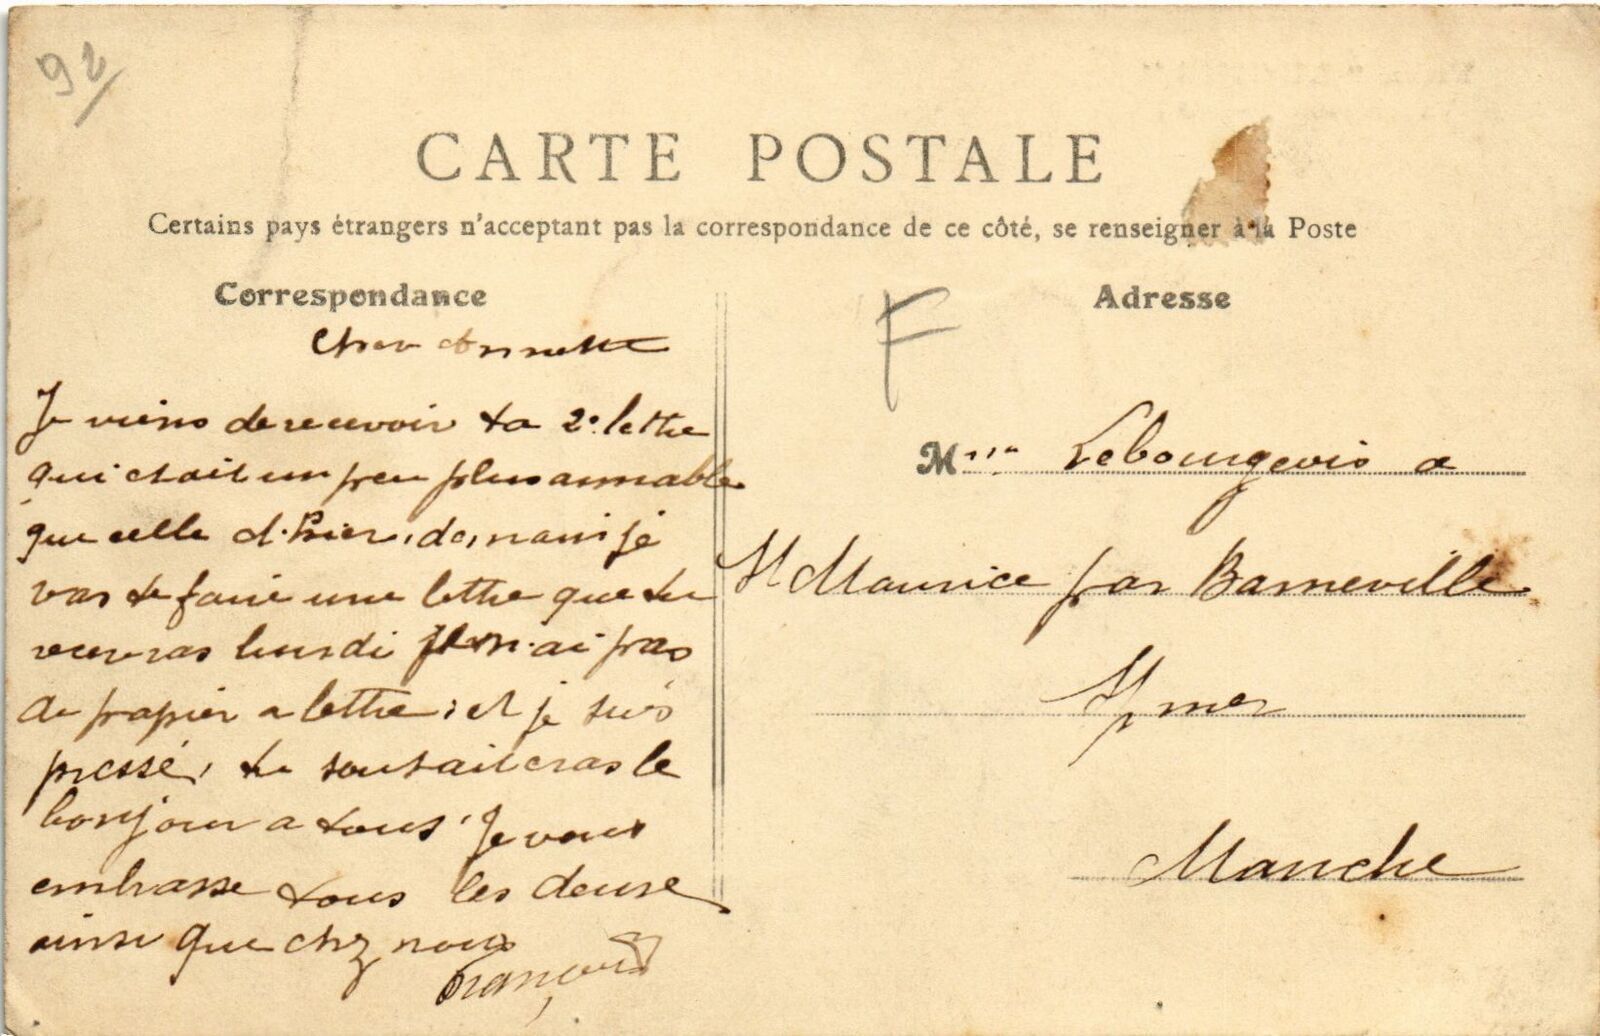 92
CARTE POSTALE
Certains pays étrangers n'acceptant pas la correspondance de ce côté, se renseigner à la Poste
Correspondance
Cher Annette
Je viens de recevoir ta 2e lettre
qui etait un peu plus aimable
que celle d'hier, demain je
vas te faire une lettre que tu
receveras lundi je n'ai pas
de papier a lettre, et je suis
pressé, tu souhaiteras le
bonjour a tous, Je vous
embrasse tous les deuse
ainsi que chez nous
François
F
Adresse
Mme Lebourgeois a
St Maurice par Barneville
S/mer
Manche